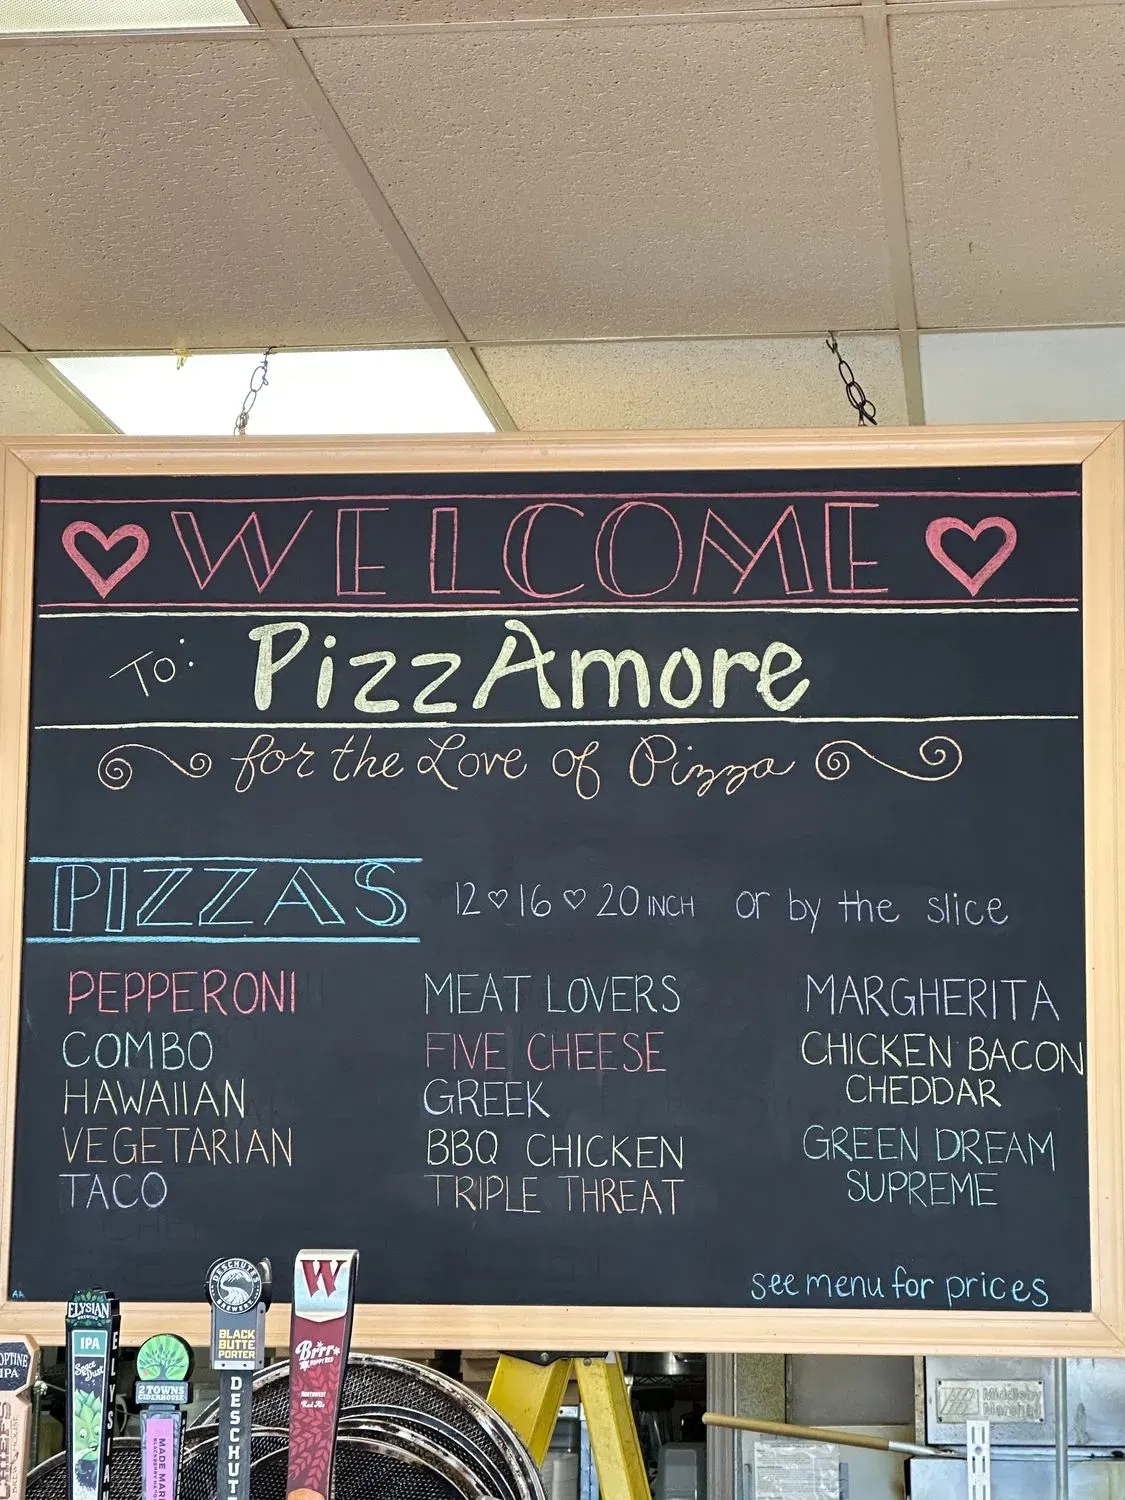 WELCOME
To: PizzAmore
for the Love of Pizza
PIZZAS
12 ♡ 16 ♡ 20 INCH or by the slice
PEPPERONI
COMBO
HAWAIIAN
VEGETARIAN
TACO
MEAT LOVERS
FIVE CHEESE
GREEK
BBQ CHICKEN
TRIPLE THREAT
MARGHERITA
CHICKEN BACON
CHEDDAR
GREEN DREAM
SUPREME
see menu for prices
AA
IPA
ELYSIAN
IPA
Space
Dust
2 TOWNS
CIDERHOUSE
MADE MARI
DESCHUTES
BREWERY
BLACK
BUTTE
PORTER
DESCHUT
W
Brrr
HOPPY RED
NORTHWEST
Red Ale
Middleby
Marshall